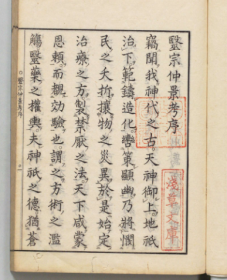 醫宗仲景考序
竊聞我神代之古天神御上地祇
治下範鑄造化兼東顯幽乃將憫
民之夭折攘物之災異於是始定
治療之方製禁厭之法天下咸蒙
恩頼而覩効驗也謂之方術之濫
觴醫藥之權輿夫神祇之德猶蒼
淺草文庫